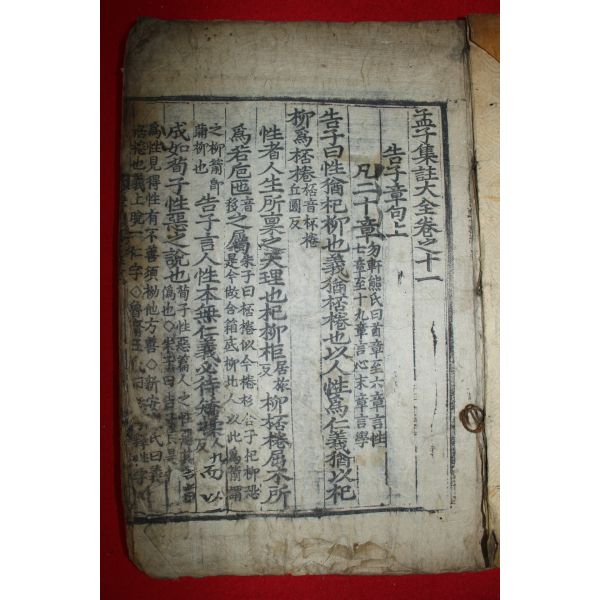 孟子集註大全卷之十一
告子章句上
凡二十章 勿軒熊氏曰首章至六章言性
七章至十九章言心末章言學
告子曰性猶杞柳也義猶桮棬也以人性爲仁義猶以杞
柳爲桮棬 桮音杯棬
丘圓反
性者人生所禀之天理也杞柳柜 居旅
反 柳桮棬屈木所
爲若卮匜 音
移 之屬 朱子曰桮棬似今棬杉合子杞柳恐
是今做合箱底柳北人以此爲箭謂
之柳箭即
蒲柳也 告子言人性本無仁義必待矯揉 而
成如荀子性惡之說也 荀子性惡篇人之性惡其善
僞也○朱子曰告子
爲性見得性有不善須拗他方善○新安 氏曰義